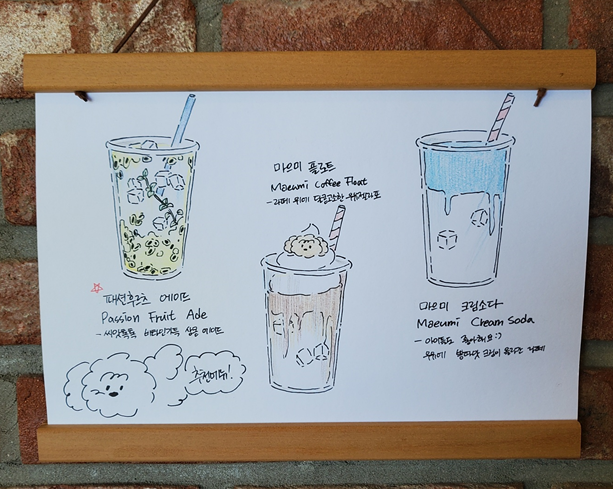 마으미 플로트
Maeumi Coffee Float
- 라떼 위에 달콤고소한
☆
패션후르츠 에이드
Passion Fruit Ade
- 씨앗톡톡 비타민가득 상큼 에이드
추천메뉴!
마으미 크림소다
Maeumi Cream Soda
- 아이들도 좋아해요 :)
우유위에 크림이 올라간